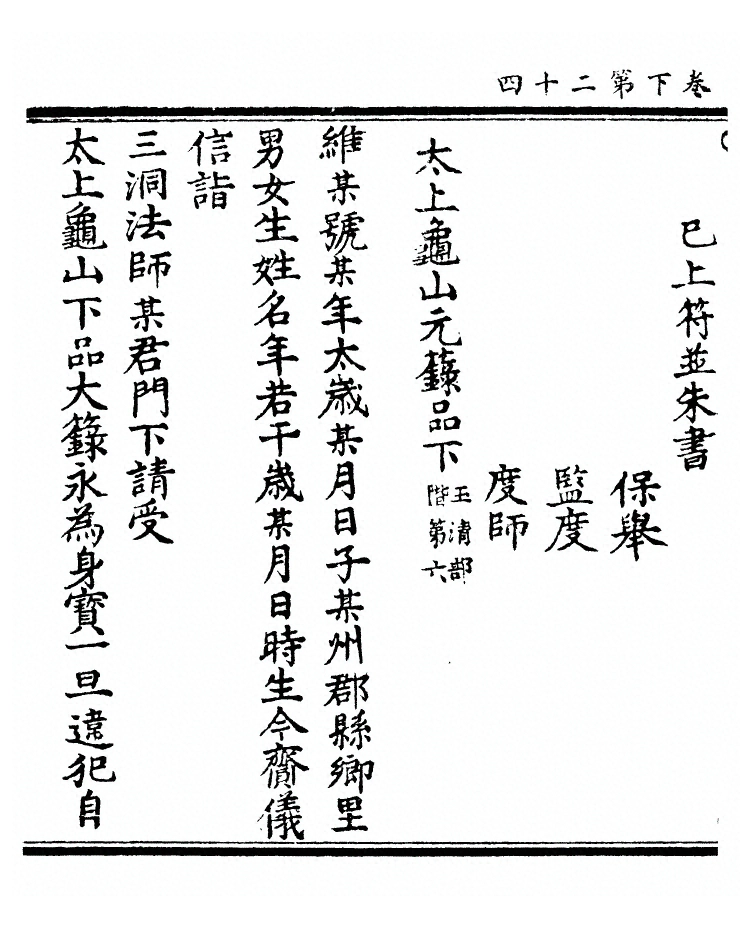 卷下第二十四
已上符並朱書
保舉
監度
度師
太上龜山元籙品下玉清部階第六
維某號某年太歲某月日子某州郡縣鄉里
男女生姓名年若干歲某月日時生今齎儀
信詣
三洞法師某君門下請受
太上龜山下品大籙永為身寶一旦違犯自